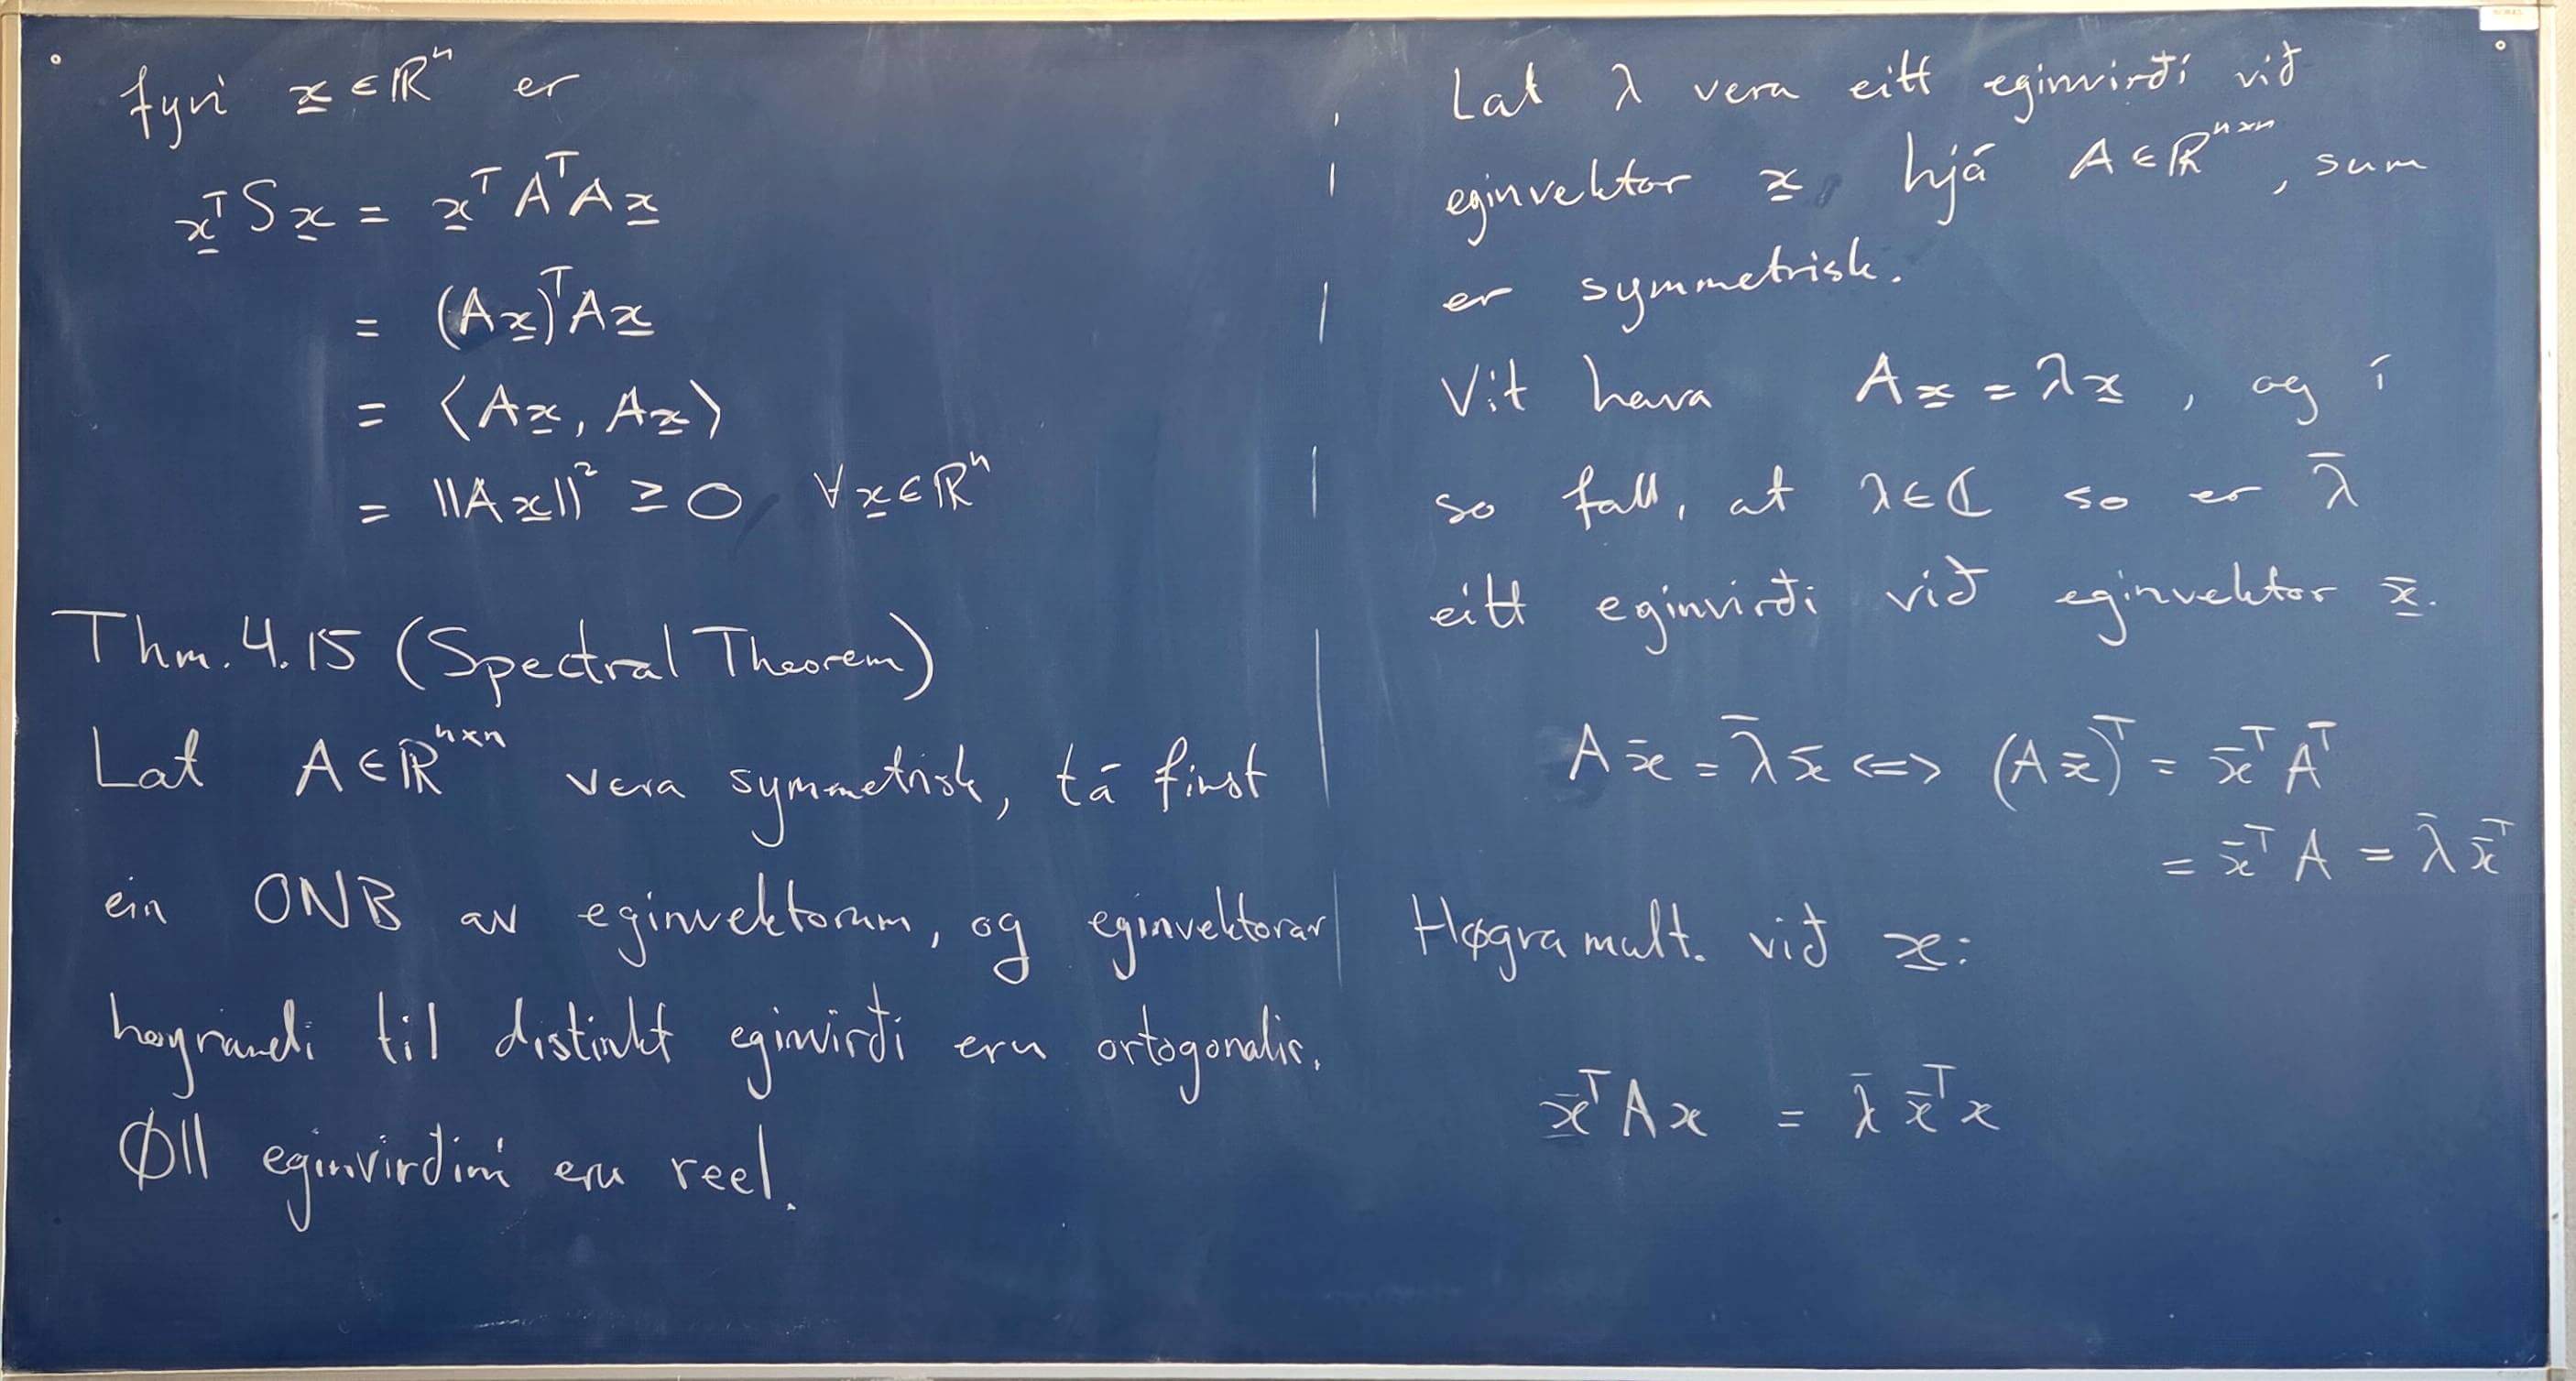 fyri x ∈ ℝⁿ er
xᵀSx = xᵀAᵀAx
= (Ax)ᵀAx
= ⟨Ax, Ax⟩
= ||Ax||² ≥ 0 ∀x∈ℝⁿ
Thm. 4.15 (Spectral Theorem)
Lat A∈ℝⁿˣⁿ vera symmetrisk, tá finst
ein ONB av eginvektorum, og eginvektorar
hoyrandi til distinkt eginvirði eru ortogonalir.
Øll eginvirðini eru reel.
Lat λ vera eitt eginvirði við
eginvektor x hjá A∈ℝⁿˣⁿ, sum
er symmetrisk.
Vit hava Ax = λx, og í
so fall, at λ∈ℂ so er λ̄
eitt eginvirði við eginvektor x̄.
Ax̄ = λ̄x̄ <=> (Ax̄)ᵀ = x̄ᵀAᵀ
= x̄ᵀA = λ̄x̄ᵀ
Høgra mult. við x:
x̄ᵀAx = λ̄x̄ᵀx